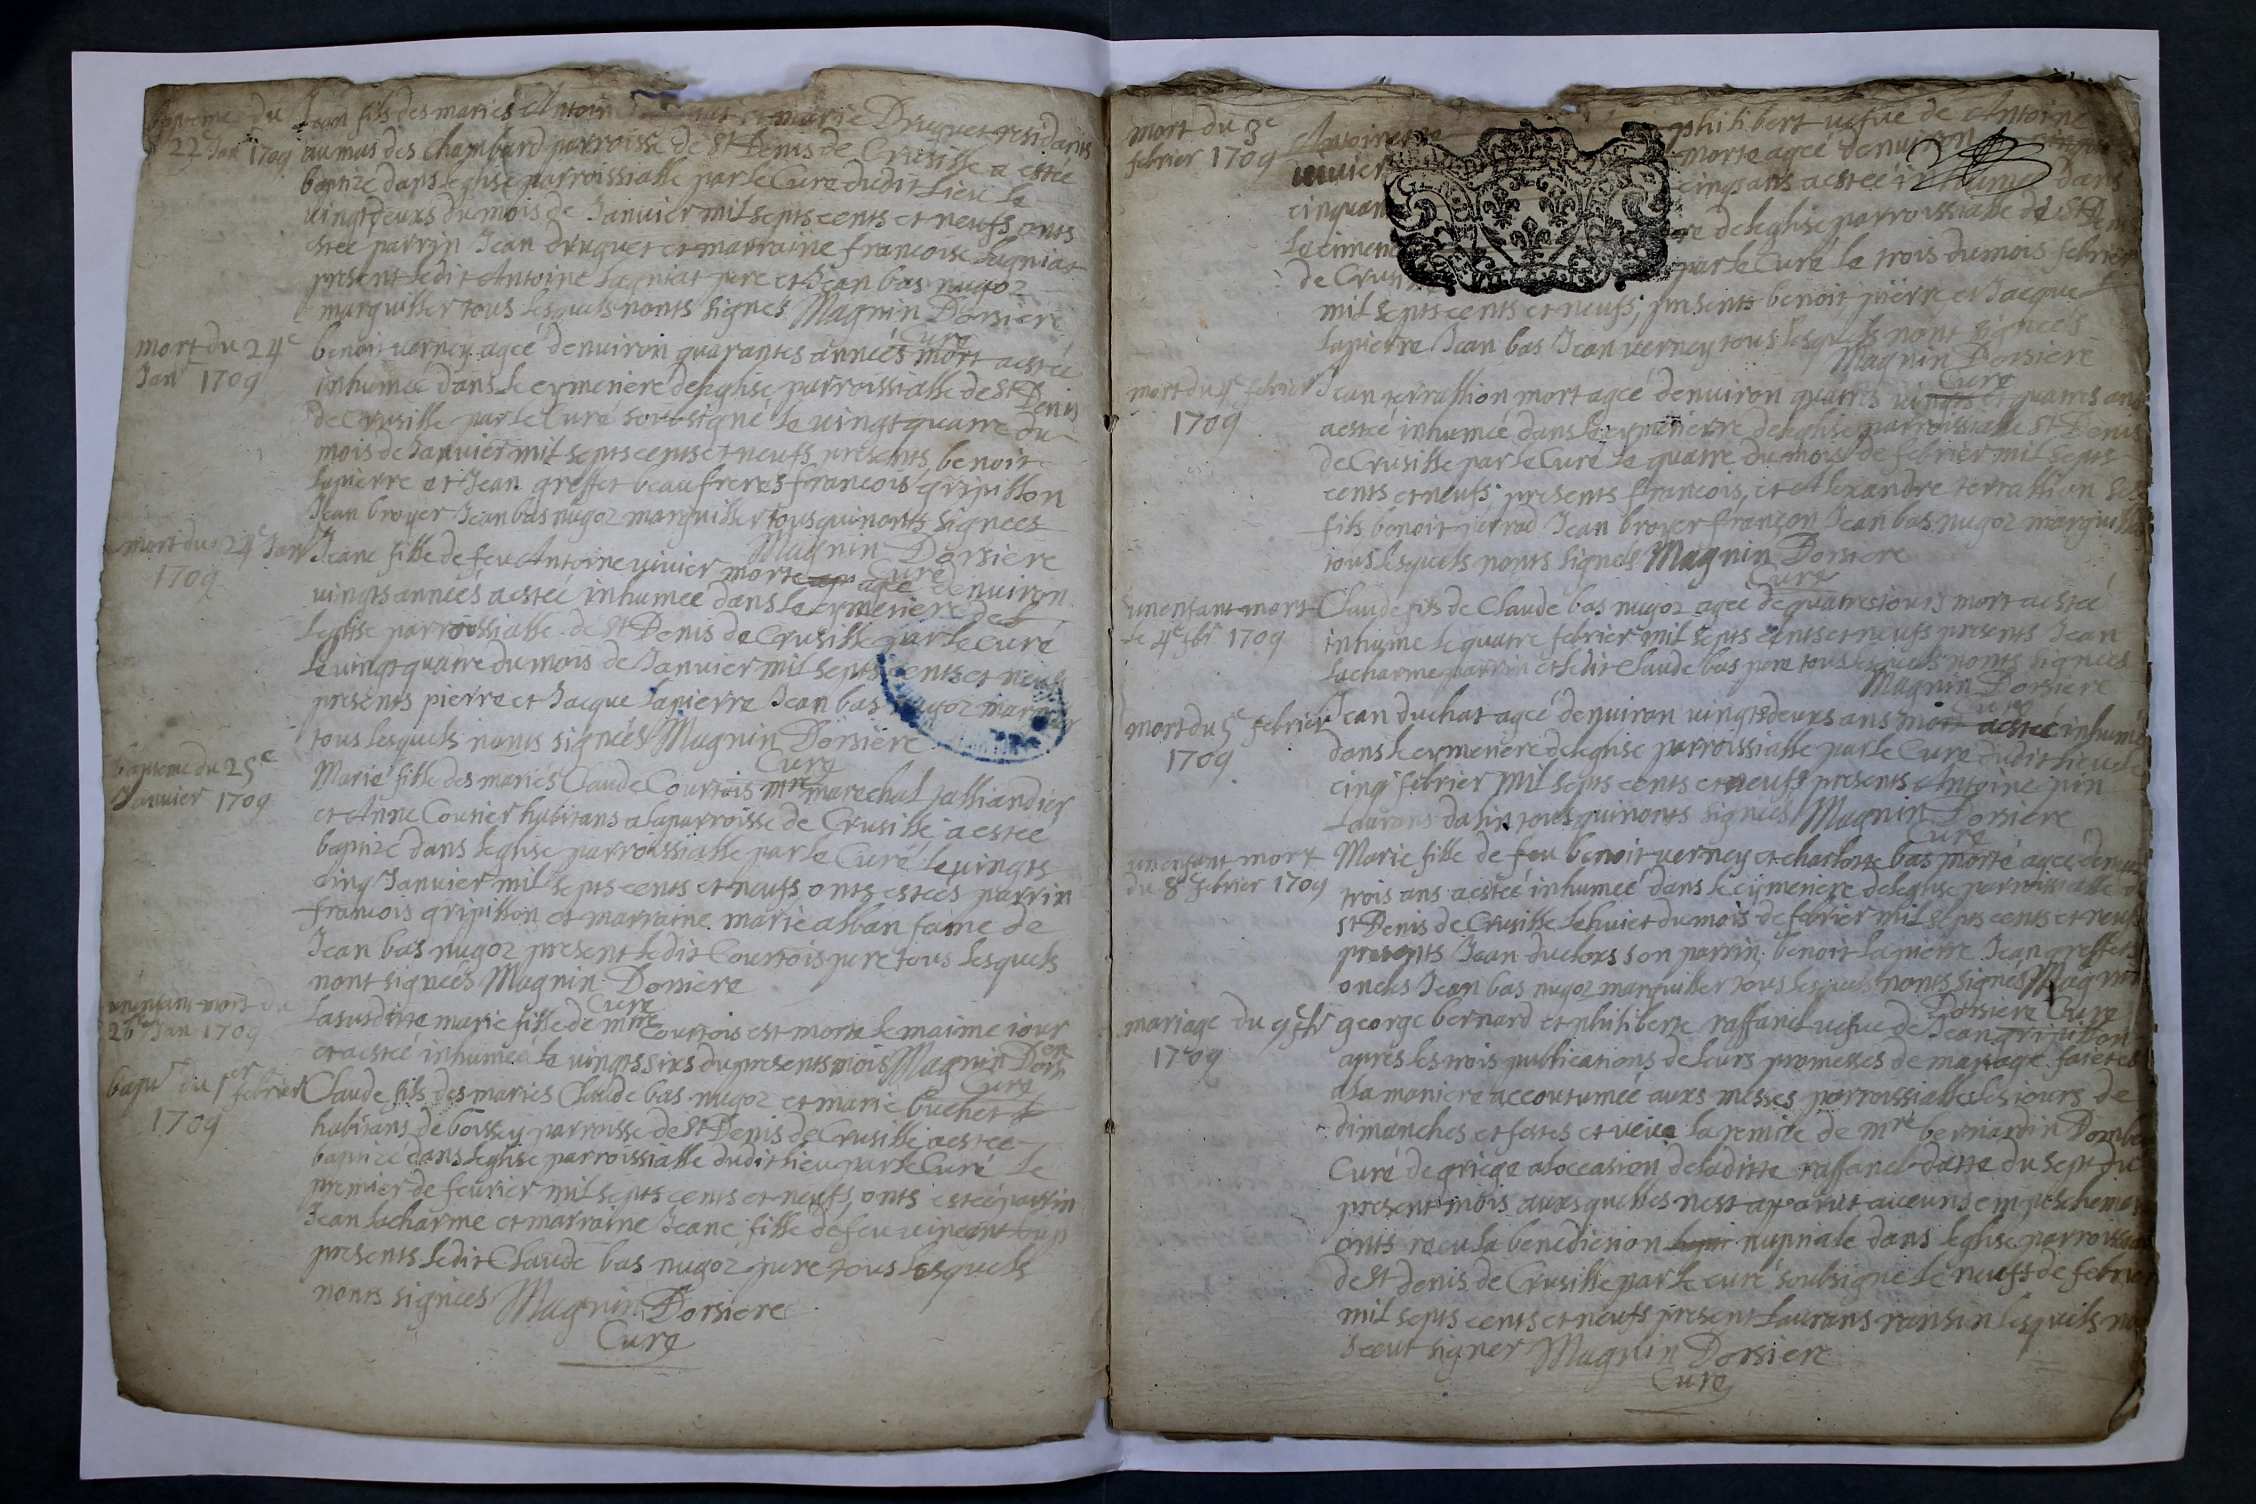 bapteme du
22e Jan 1709
Jean fils des mariés Antoine Lagniat et marie Druguet residants
au mas des chambard parroisse de St Denis de Crusille a estée
baptizé dans leglise parroissialle par le Curé dudit lieu le
vingtdeuxs du mois de Janvier mil septs cents et neufs onts
estee parrin Jean druguet et marraine francoise Lagniat
present ledit Antoine Lagniat pere et Jean bas nugoz
marguillier tous lesquels nonts signes Magnin Dorsiere
Curé
mort du 24e
Jan 1709
benoit verney ageé denviron quarantes anneés mort aesteé
inhumeé dans le cymeniere deleglise parroissialle de St Denis
de Crusille par le Curé soubsigné le vingtquatre du
mois de Janvier mil septs cents et neufs presents benoit
lapierre et Jean greffet beaufreres francois gripillon
Jean broyer Jean bas nugoz marguillier tous qui nonts signees
Magnin Dorsiere
Curé
mort du 24e Jan
1709
Jeane fille de feu Antoine vivier morte ageé denviron
vingts anneés aesteé inhumeé dans le cymeniere de
leglise parroissialle de St Denis de Crusille par le Curé
le vingtquatre du mois de Janvier mil septs cents et neufs
presents pierre et Jacque lapierre Jean bas nugoz
tous lesquels nonts signeés Magnin Dorsiere
Curé
bapteme du 25e
Janvier 1709
Marie fille des mariés Claude Courtois mre marechal Talliandier
et Anne Courier habitans a la parroisse de Crusille, aestee
baptizé dans leglise parroissialle par le Curé le vingts
cinq Janvier mil septs cents et neufs onts esteés parrin
francois gripillon et marraine marie alban fame de
Jean bas nugoz present ledit Courtois pere tous lesquels
nont signeés Magnin Dorsiere
Curé
un enfant mort du
26e Jan 1709
la susditte marie fille de mre Courtois est morte le maime jour
et aesteé inhumeé le vingtssixs du presents mois Magnin Dorsre
Curé
bapte du 1er febrier
1709
Claude fils des mariés Claude bas nugoz et marie buchet
habitans de boissey parroisse de St Denis de Crusille aestee
baptizé dans leglise parroissialle dudit lieu par le Curé le
premier de fevrier mil septs cents et neufs, onts esteé parrin
Jean lacharme et marraine Jeane fille de feu vincent
presents ledit Claude bas nugoz pere tous lesquels
nonts signeés Magnin Dorsiere
Curé
mort du 3e
febrier 1709
Antoinette philibert vefve de Antoine
vivier morte ageé denviron
cinquante cinq ans aesteé inhumeé dans
le cimeniere deleglise parroissialle de St Denis
de Crusille par le Curé le trois du mois febrier
mil septs cents et neufs; presents benoit, pierre et Jacque
lapierre Jean bas Jean verney tous lesquels nont signeés
Magnin Dorsiere
Curé
mort du 4e febrier
1709
Jean terrallion mort ageé denviron quatres vingts et quatres ans
aesteé inhumeé dans le cymeniere deleglise parroissialle St Denis
de Crusille par le Curé le quatre du mois de febrier mil septs
cents et neufs; presents francois, et Alexandre terrallion ses
fils benoit perrad Jean broyer françon Jean bas nugoz marguillier
tous lesquels nonts signeés Magnin Dorsiere
Curé
un enfant mort
le 4e fbr 1709
Claude fils de Claude bas nugoz ageé de quatres jours mort aesteé
inhume le quatre febrier mil septs cents et neufs presents Jean
lacharme parrin et ledit Claude bas pere tous lesquels nonts signeés
Magnin Dorsiere
Curé
mort du 5e febrier
1709
Jean duchat ageé denviron vingtsdeuxs ans mort aesteé inhumé
dans le cymeniere deleglise parroissialle par le Curé dudit lieu le
cinq febrier mil septs cents et neufs presents Antoine pin
Laurans dalin tous qui nonts signeés Magnin Dorsiere
Curé
un enfant mort
du 8e febrier 1709
Marie fille de feu benoit verney et charlotte bas morte ageé denviron
trois ans aesteé inhumeé dans le cymeniere deleglise parroissialle de
St Denis de Crusille le huict du mois de febrier mil septs cents et neufs
presents Jean duclors son parrin benoit lapierre Jean greffet
oncles Jean bas nugoz marguillier tous lesquels nonts signés Magnin
Dorsiere Curé
mariage du 9e fbr
1709
george bernard et philiberte raffanel vefve de Jean gripillon
apres les trois publications de leurs promesses de mariage faietes
a la maniere accoutumeé auxs messes parroissialles les jours de
dimanches et festes et veüe la remize de mre bernardin Dombe
Curé de griege a loccasion deladitte raffanel datte du sept du
present mois auxsquelles nest apparut aucuns empeschemens
onts receu la benediction nuptiale dans leglise parroissialle
de St denis de Crusille par le curé soubsigné le neufs de febrier
mil septs cents et neufs present Laurans ronsin lesquels nont
sceut signer Magnin Dorsiere
Curé